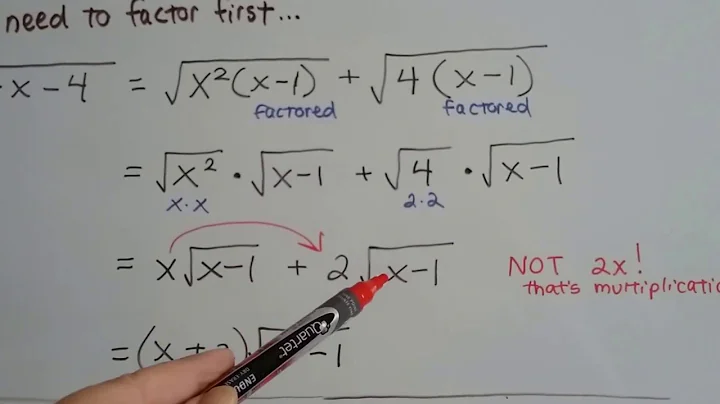 need to factor first...
x - 4 = √(x²(x-1)) + √(4(x-1))
factored factored
= √x² · √(x-1) + √4 · √(x-1)
x·x 2·2
= x√(x-1) + 2√(x-1) NOT 2x!
that's multiplicatio
= (x + 2)·√ -1
Quartet